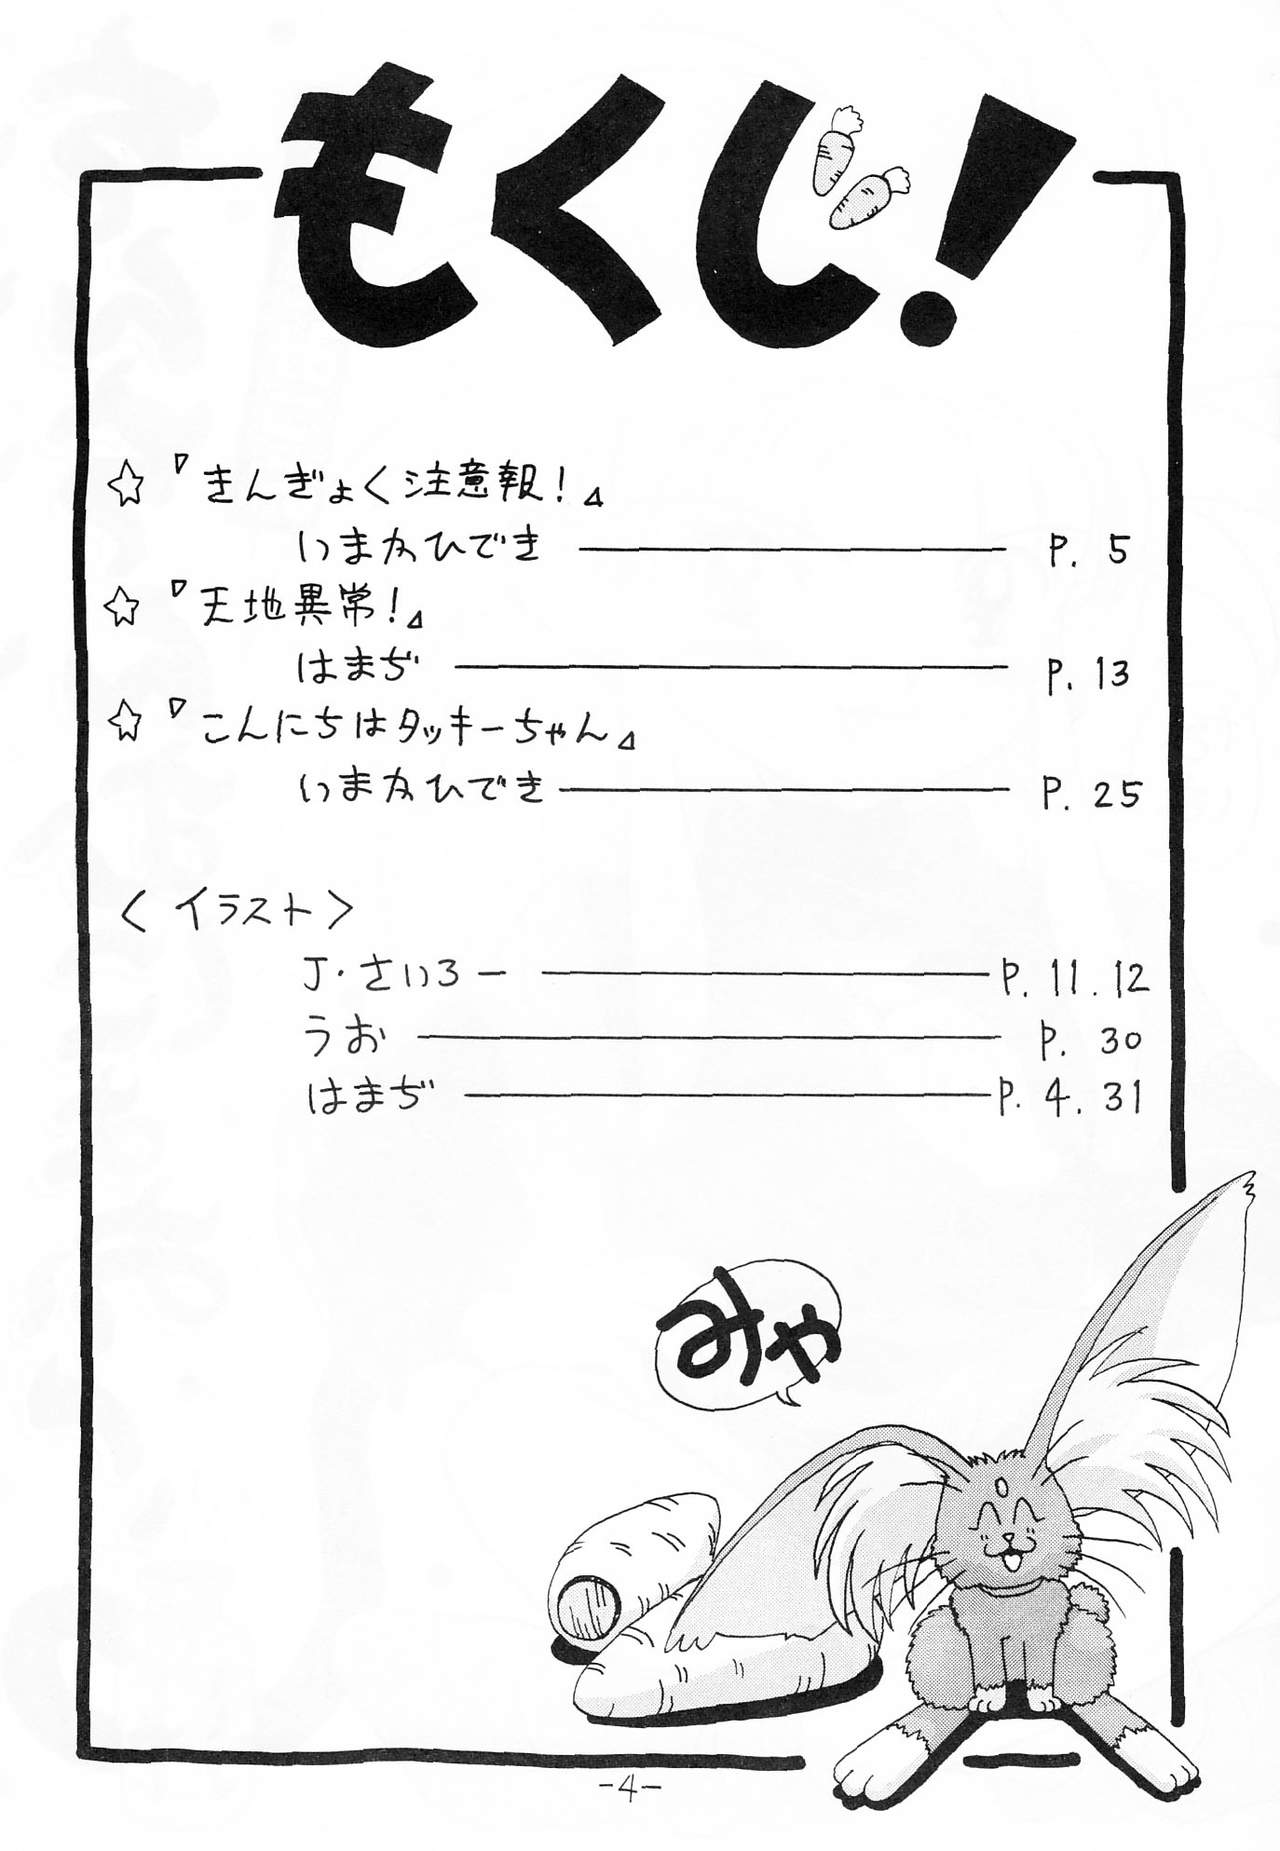 もくじ!
☆『きんぎょく注意報!』
いまかひでき ― P. 5
☆『天地異常!』
はまぢ ― P. 13
☆『こんにちはタッキーちゃん』
いまかひでき ― P. 25
<イラスト>
J・さいろー ― P. 11. 12
うお ― P. 30
はまぢ ― P. 4. 31
みゃ
-4-